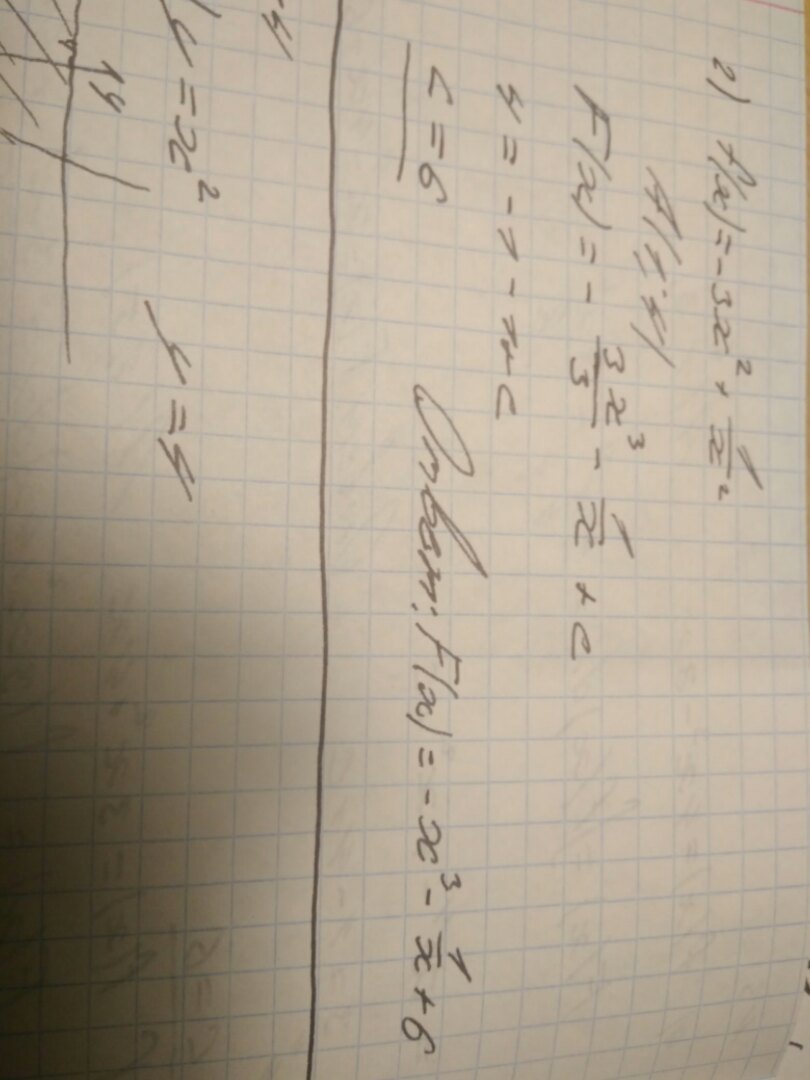 2) f(x) = -3x² + 1/x²
A(1;4)
F(x) = - 3x³/3 - 1/x + c
4 = -1 - 1 + c
c = 6
Ответ: F(x) = -x³ - 1/x + 6
y = x² y = 4